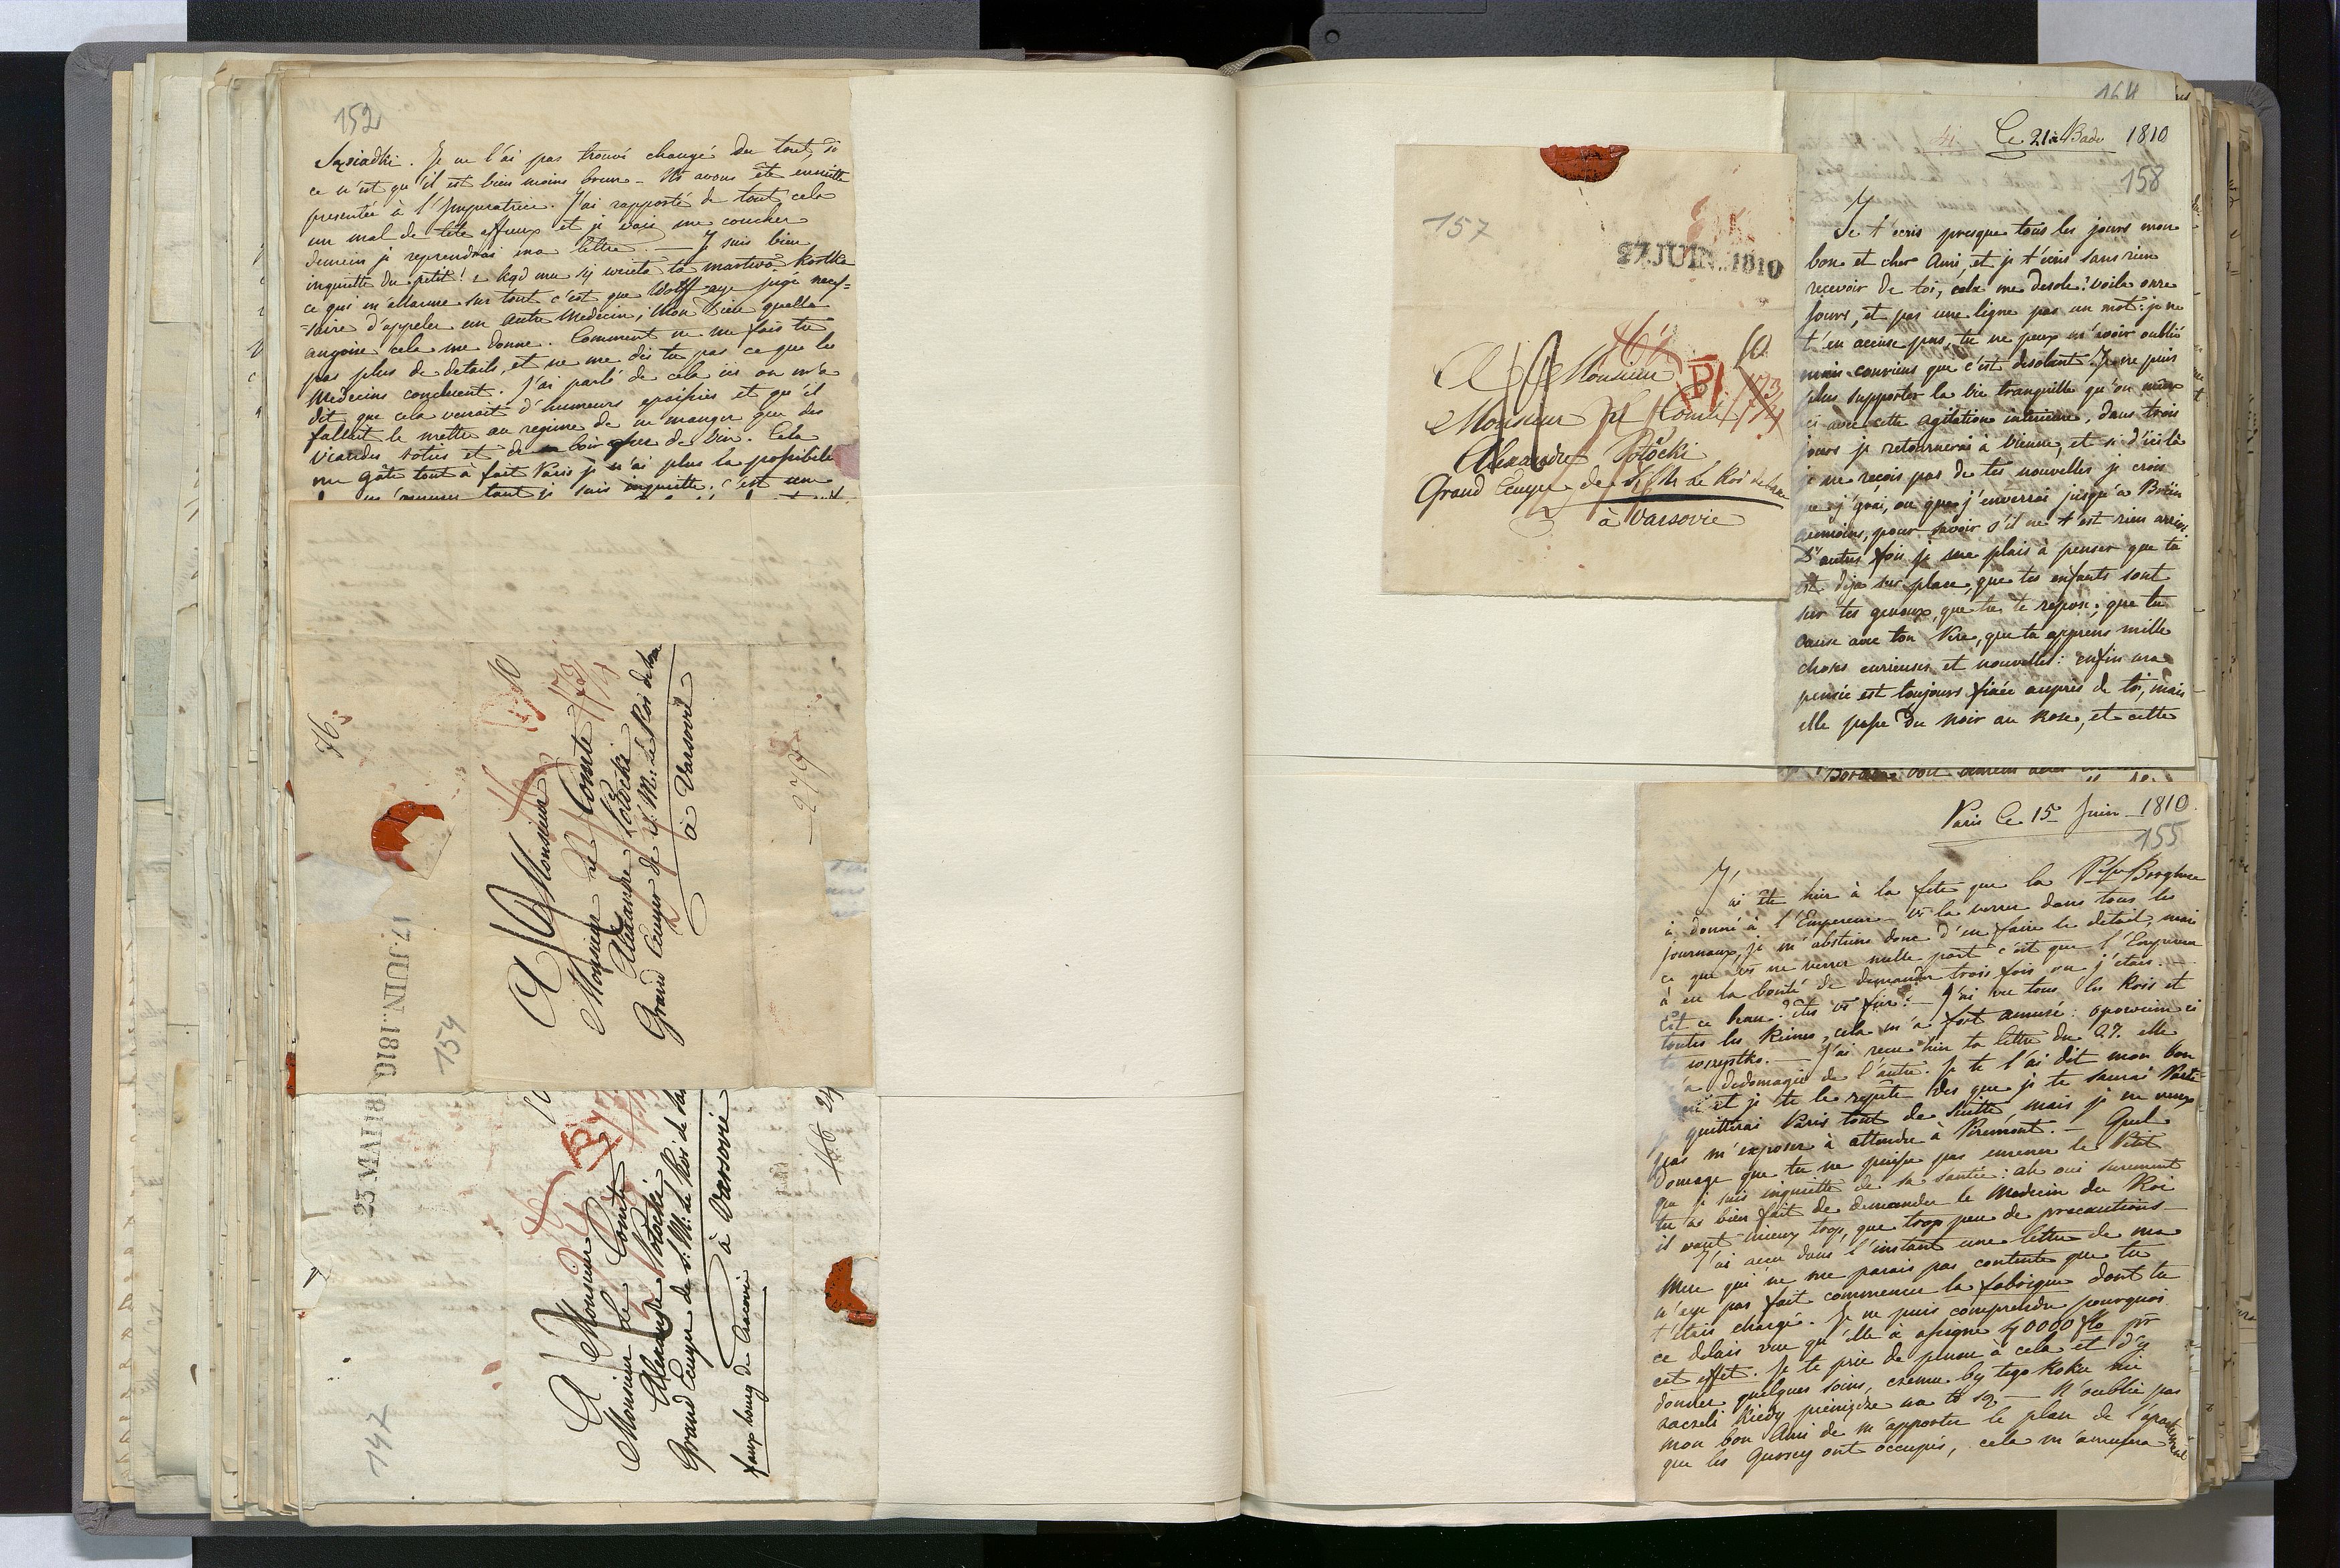 152
Sąsiadki. Je ne l'ai pas trouvé changé du tout, si
ce n'est qu'il est bien moins brun - Ns avons été ensuite
presentée à l'Imperatrice. J'ai rapporté de tout cela
un mal de tête affreux et je vais me coucher
demain je reprendrai ma lettre. — Je suis bien
inquiette du petit!
ce qui m'allarme sur tout c'est que Wolff aye jugé neces=
=saire d'appeler un autre Medecin, Mon Dieu quelle
angoise cela me donne. Comment ne me fais tu
pas plus de details, et ne me dis tu pas ce que les
Medecins concluent. J'ai parlé de cela ici on m'a
dit que cela venoit d'humeurs epaissies et qu'il
falloit le mettre au regime de ne manger que des
viandes roties et de boire de vin. Cela
me gâte tout à fait Paris je n'ai plus la possibilité
tant je suis inquiette. c'est une
76.
10
A Monsieur
Monsieur le Comte
Alexandre Potocki
Grand Ecuyer de S. M. le Roi de Saxe
à Varsovie
17. JUIN. 1810
154
10
A Monsieur
Monsieur le Comte
Alexandre Potocki
Grand Ecuyer de S. M. le Roi de Saxe
à Varsovie
faux bourg de Cracovie
23 MAI 1810
147
157
27. JUIN. 1810
10
A Monsieur
Monsieur le Comte
Alexandre Potocki
Grand Ecuyer de S. M. Le Roi de Saxe
à Varsovie
164
4. Le 21 à Bade 1810
158
Je t'ecris presque tous les jours mon
bon et cher Ami, et je t'ecris sans rien
recevoir de toi, cela me desole! voila onze
jours, et pas une ligne pas un mot: je ne
t'en accuse pas, tu ne peux m'avoir oublié
mais conviens que c'est desolant. Je ne puis
plus supporter la vie tranquille qu'on mene
ici avec cette agitation interieure, dans trois
jours je retournerai à Vienne, et si d'ici là
je ne reçois pas de tes nouvelles je crois
que j'irai, ou que j'enverrai jusqu'a Brün
aumoins, pour savoir s'il ne t'est rien arrivé
D'autres fois je me plais à penser que tu
est deja sur place, que tes enfants sont
sur tes genoux, que tu te repose, que tu
cause avec ton Pere, que tu apprens mille
choses curieuses et nouvelles: enfin ma
pensée est toujours fixée auprès de toi, mais
elle passe du noir au rose, et cette
Paris Le 15 Juin 1810
155
J'ai été hier à la fete que la Psse Borghese
à donné à l'Empereur - vs la verrer dans tous les
journaux, je m'abstiens donc d'en faire le detail, mais
ce que vs ne verrer nulle part c'est que l'Empereur
à eu la bonté de demander trois fois ou j'etais. -
Est ce beau? etes vs fier? - J'ai vu tous les Rois et
toutes les Reines, cela m'a fort amusé: opowiem ci
to wszystko. — J'ai recu hier ta lettre du 27. elle
m'a dedomagé de l'autre. Je te l'ai dit mon bon
Ami et je te le repete des que je te saurai Parti
je quitterai Paris tout de suitte, mais je ne veux
pas m'exposer à attendre à Pirmont. - Quel
domage que tu ne puisse pas emener le Petit
que je suis inquiette de sa santée: ah oui surement
tu as bien fait de demander le Medecin du Roi
il vaut mieux trop, que trop peu de precautions -
J'ai recu dans l'instant une lettre de ma
Mere qui ne me parais pas contente que tu
n'aye pas fait commencer la fabrique dont tu
t'etais chargé. Je ne puis comprendre pourquoi
ce delais vu qu'elle à assigné 40000 flo pr
cet effet. Je te prie de penser à cela et d'y
donner quelques soins, czemu by tego Roku nie
zaczeli kiedy pieniądze na to są — N'oublie pas
mon bon Ami de m'apporter le plan de l'apartement
que les Gurscy ont occupés, cela m'amusera